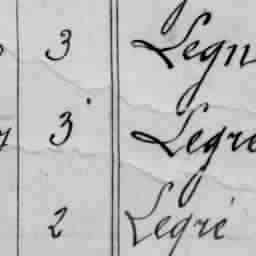 3 Legn
3 Legre
2 Legré